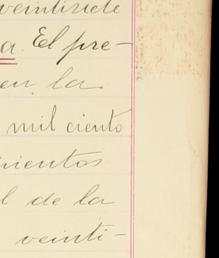 veintisiete
a. El pre-
en la
mil ciento
cientos
l de la
veinti-